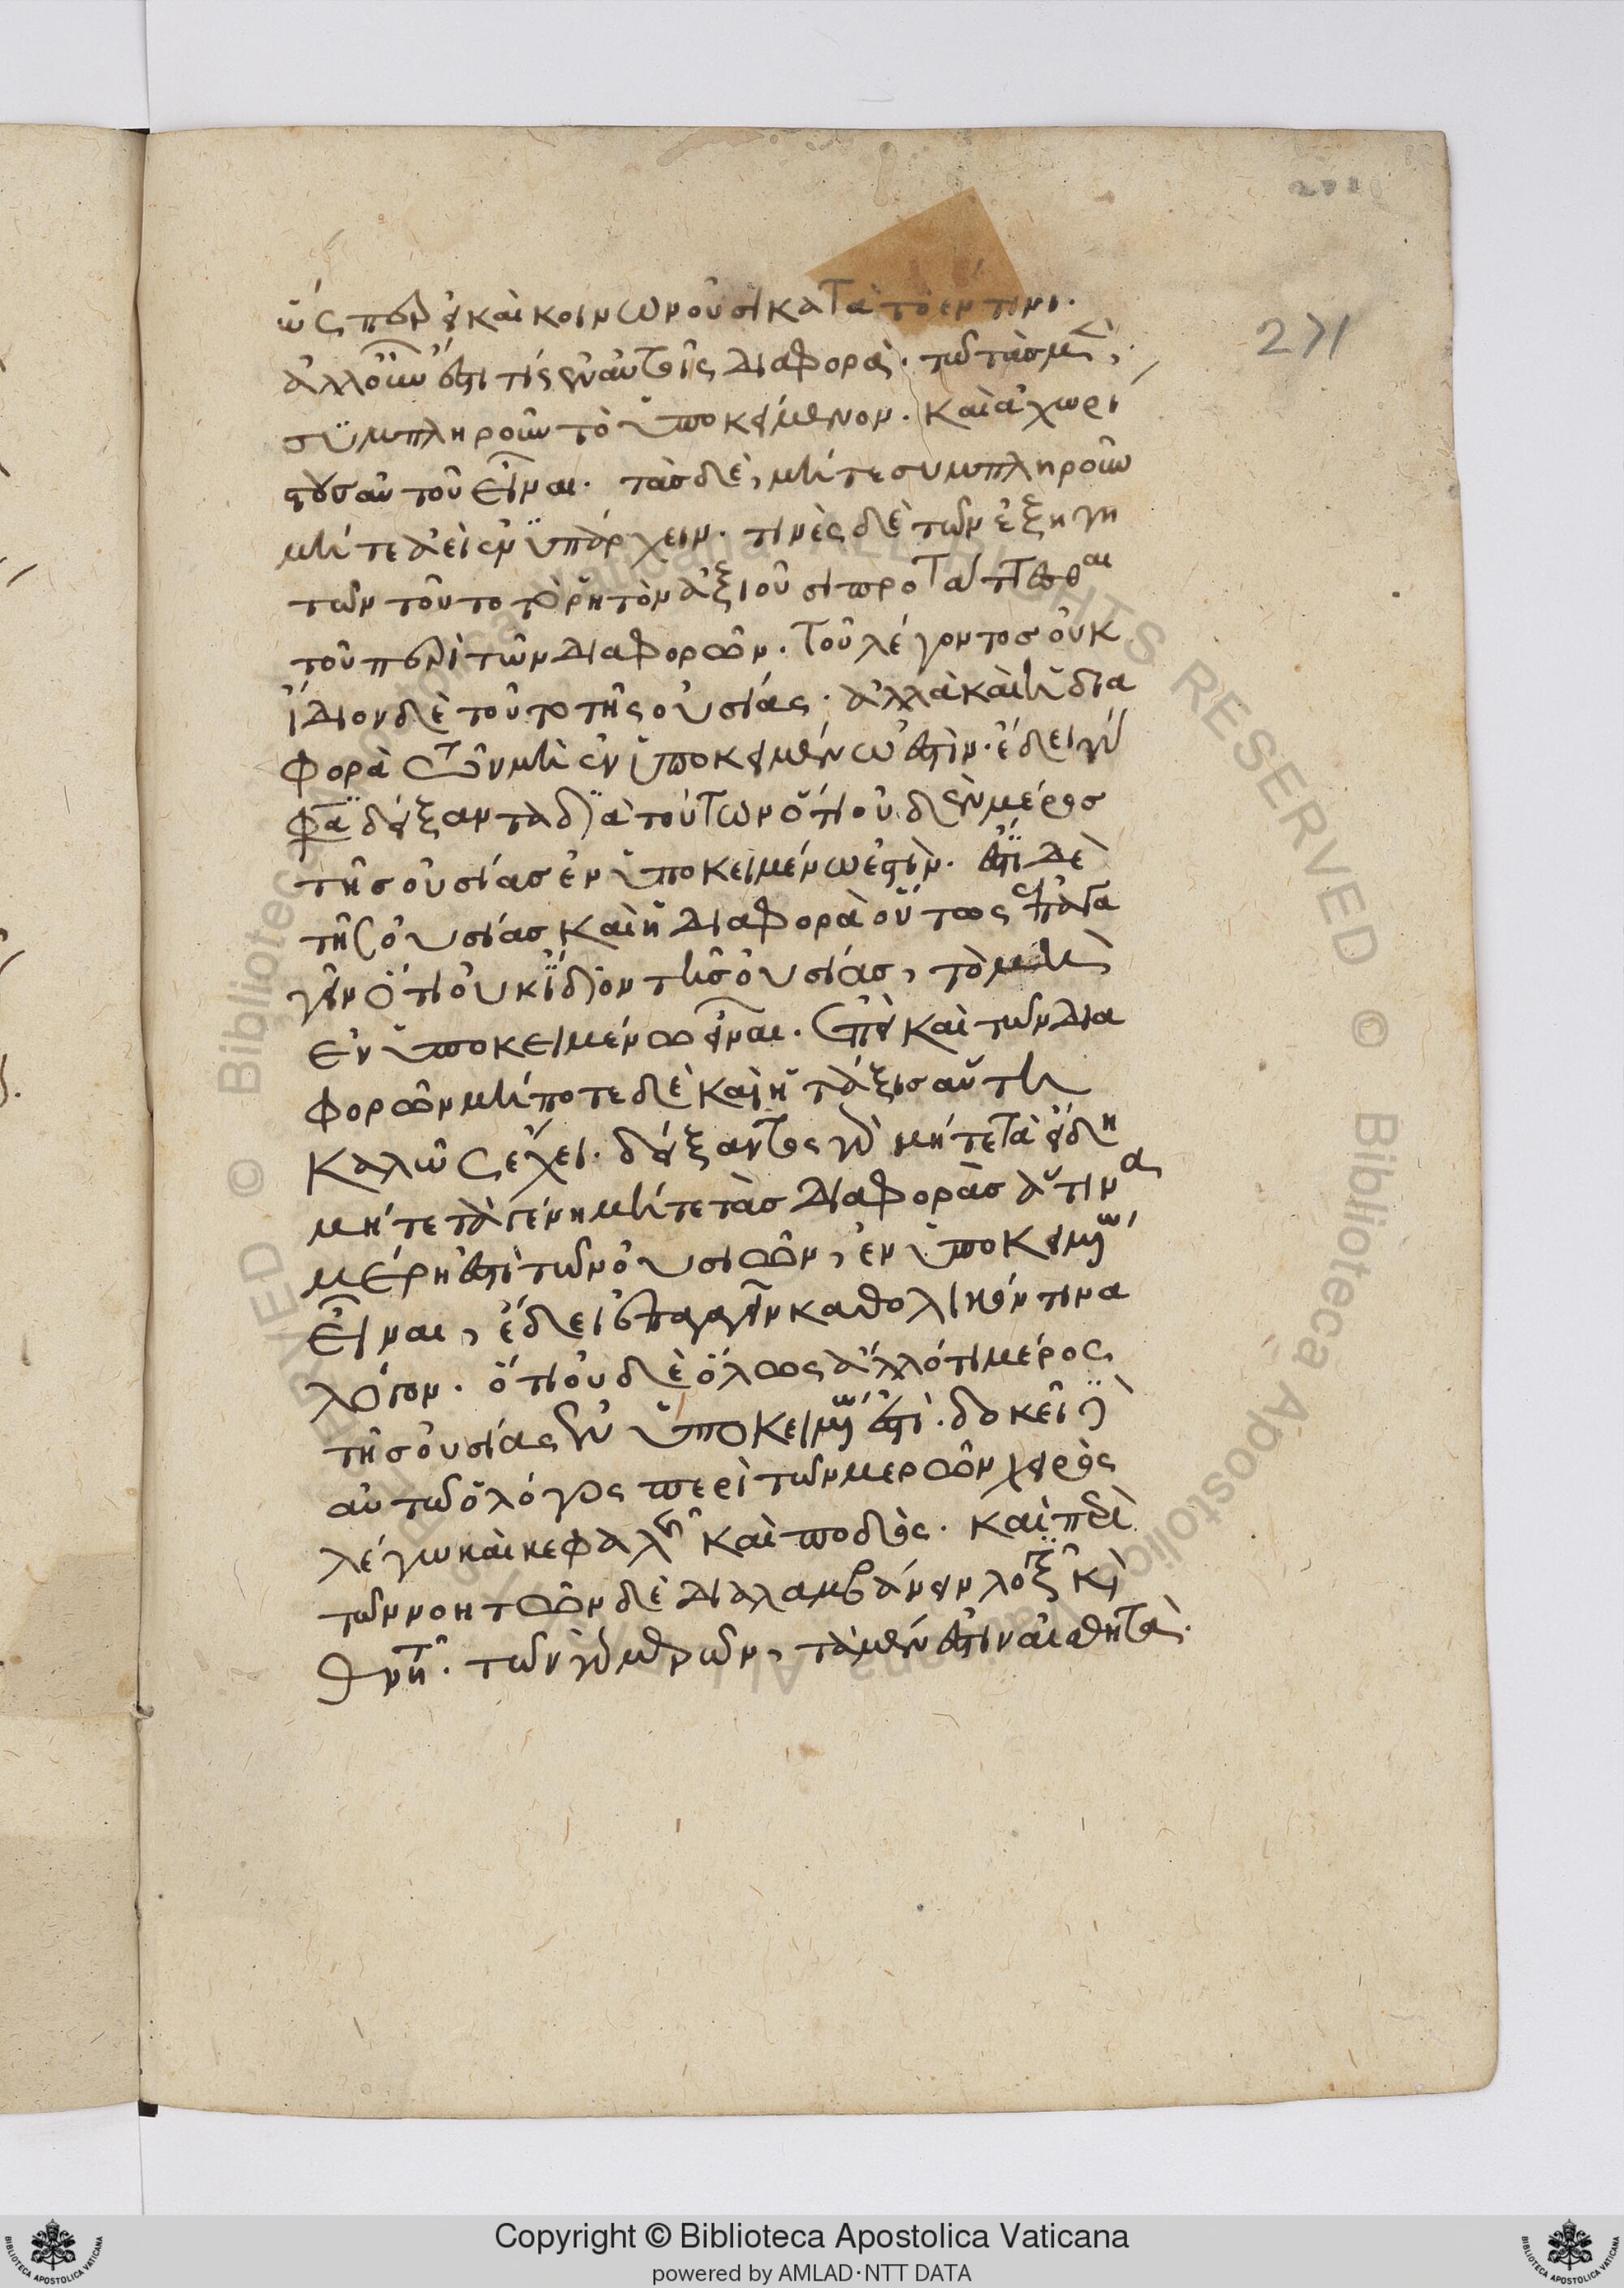 ὥσπερ εἰ καὶ κοινωνοῦσι κατὰ τὸ ἔν τινι.
ἀλλ' οὖν ἐστί τις ἐν αὐταῖς διαφορὰ. τῶ τὰς μὲν,
συμπληροῦν τὸ ὑποκείμενον. καὶ ἀχωρί
στους αὐτοῦ εἶναι. τὰς δὲ, μήτε συμπληροῦν
μήτε ἀεὶ ἐνυπάρχειν. τινὲς δὲ τῶν ἐξηγη
τῶν τοῦτο τὸ ῥητὸν ἀξιοῦσι προτάττεσθαι
τοῦ περὶ τῶν διαφορῶν. τοῦ λέγοντος οὐκ
ἴδιον δὲ τοῦτο τῆς οὐσίας. ἀλλὰ καὶ ἡ δια
φορὰ τῶν μὴ ἐν ὑποκειμένω ἐστὶν. ἔδει γὰρ
φασι δείξαντα διὰ τούτων ὅτι οὐδὲν μέρος
τῆς οὐσίας ἐν ὑποκειμένω ἐστὶν. ἐπεὶ δὲ
τῆς οὐσίας καὶ ἡ διαφορὰ οὕτως ἐπάγα
γεῖν ὅτι οὐκ ἴδιον τῆς οὐσίας, τὸ μὴ
ἐν ὑποκειμένω εἶναι. ἐπεὶ καὶ τῶν δια
φορῶν μήποτε δὲ καὶ ἡ τάξις αὕτη
καλῶς ἔχει. δείξαντος γὰρ μήτε τὰ εἴδη
μήτε τὰ γένη μήτε τὰς διαφορὰς ἅτινα
μέρη ἐστὶ τῶν οὐσιῶν, ἐν ὑποκειμένω
εἶναι, ἔδει ἐπαγαγεῖν καθολικόν τινα
λόγον. ὅτι οὐδὲ ὅλως ἄλλό τι μέρος
τῆς οὐσίας ἐν ὑποκειμένω ἐστί. δοκεῖ γὰρ
αὐτῶ ὁ λόγος περὶ τῶν μερῶν χειρὸς
λέγω καὶ κεφαλῆς καὶ ποδὸς. καὶ περὶ
τῶν νοητῶν δὲ διαλαμβάνειν
τῶν γὰρ μερῶν, τὰ μέν ἐστιν αἰσθητὰ.
271
Copyright © Biblioteca Apostolica Vaticana
powered by AMLAD·NTT DATA